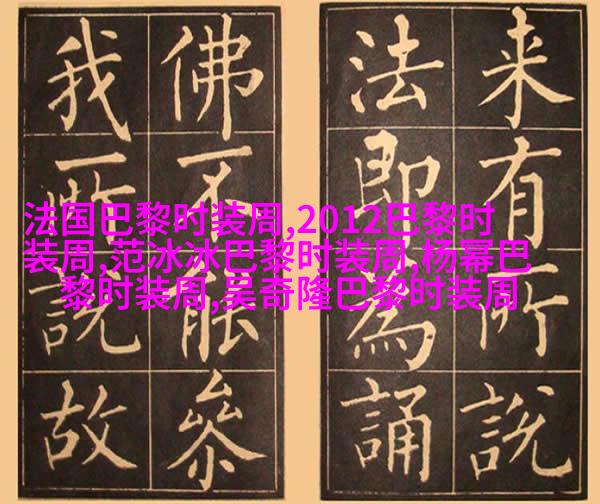 来有所說
法即為誦
佛不能叅
我所說故
法国巴黎时装周,2012巴黎时
装周,范冰冰巴黎时装周,杨幂巴
黎时装周,吴奇隆巴黎时装周